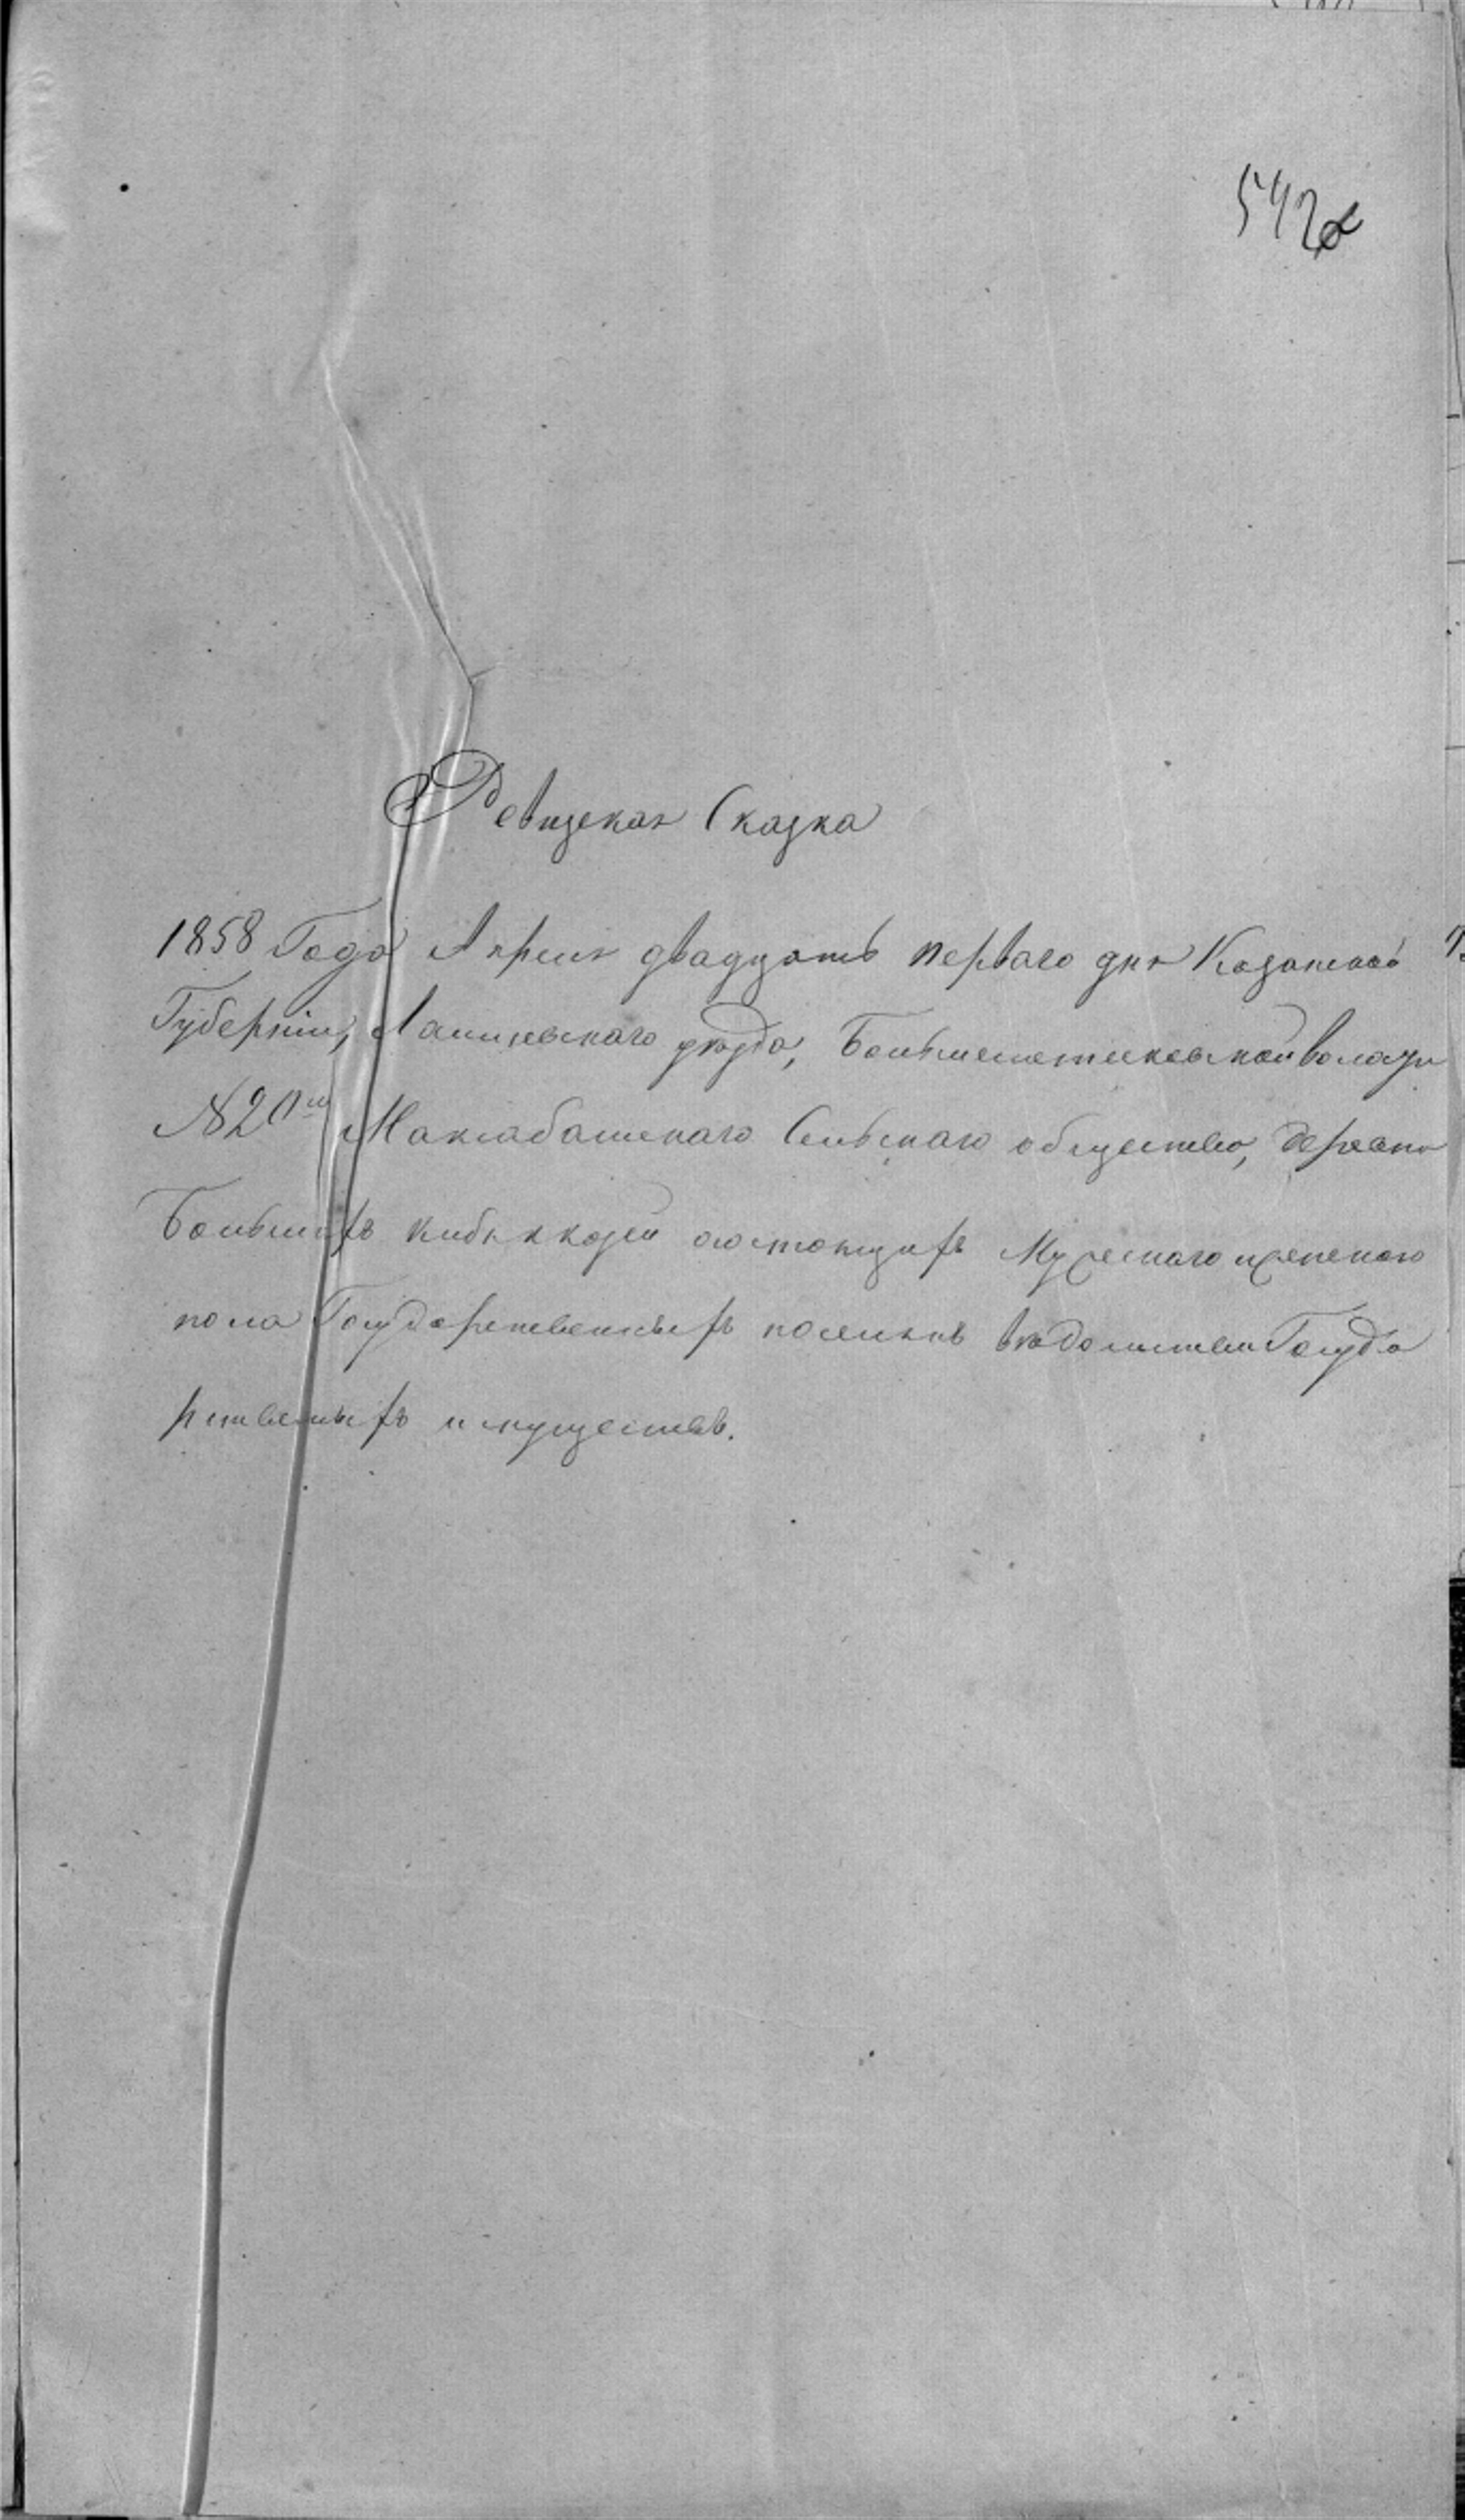 542
Ревизская Сказка
1858 Года Апреля двадцать перваго дня Казанской
Губерніи, Лаишевскаго уѣзда, Большеметесковской волости
№ 20й Максабашскаго Сельскаго общества, деревни
Большихъ Кибякозей состоящихъ Мужескаго и женскаго
пола Государственныхъ поселянъ вѣдомства Госуда
рственныхъ имуществъ.